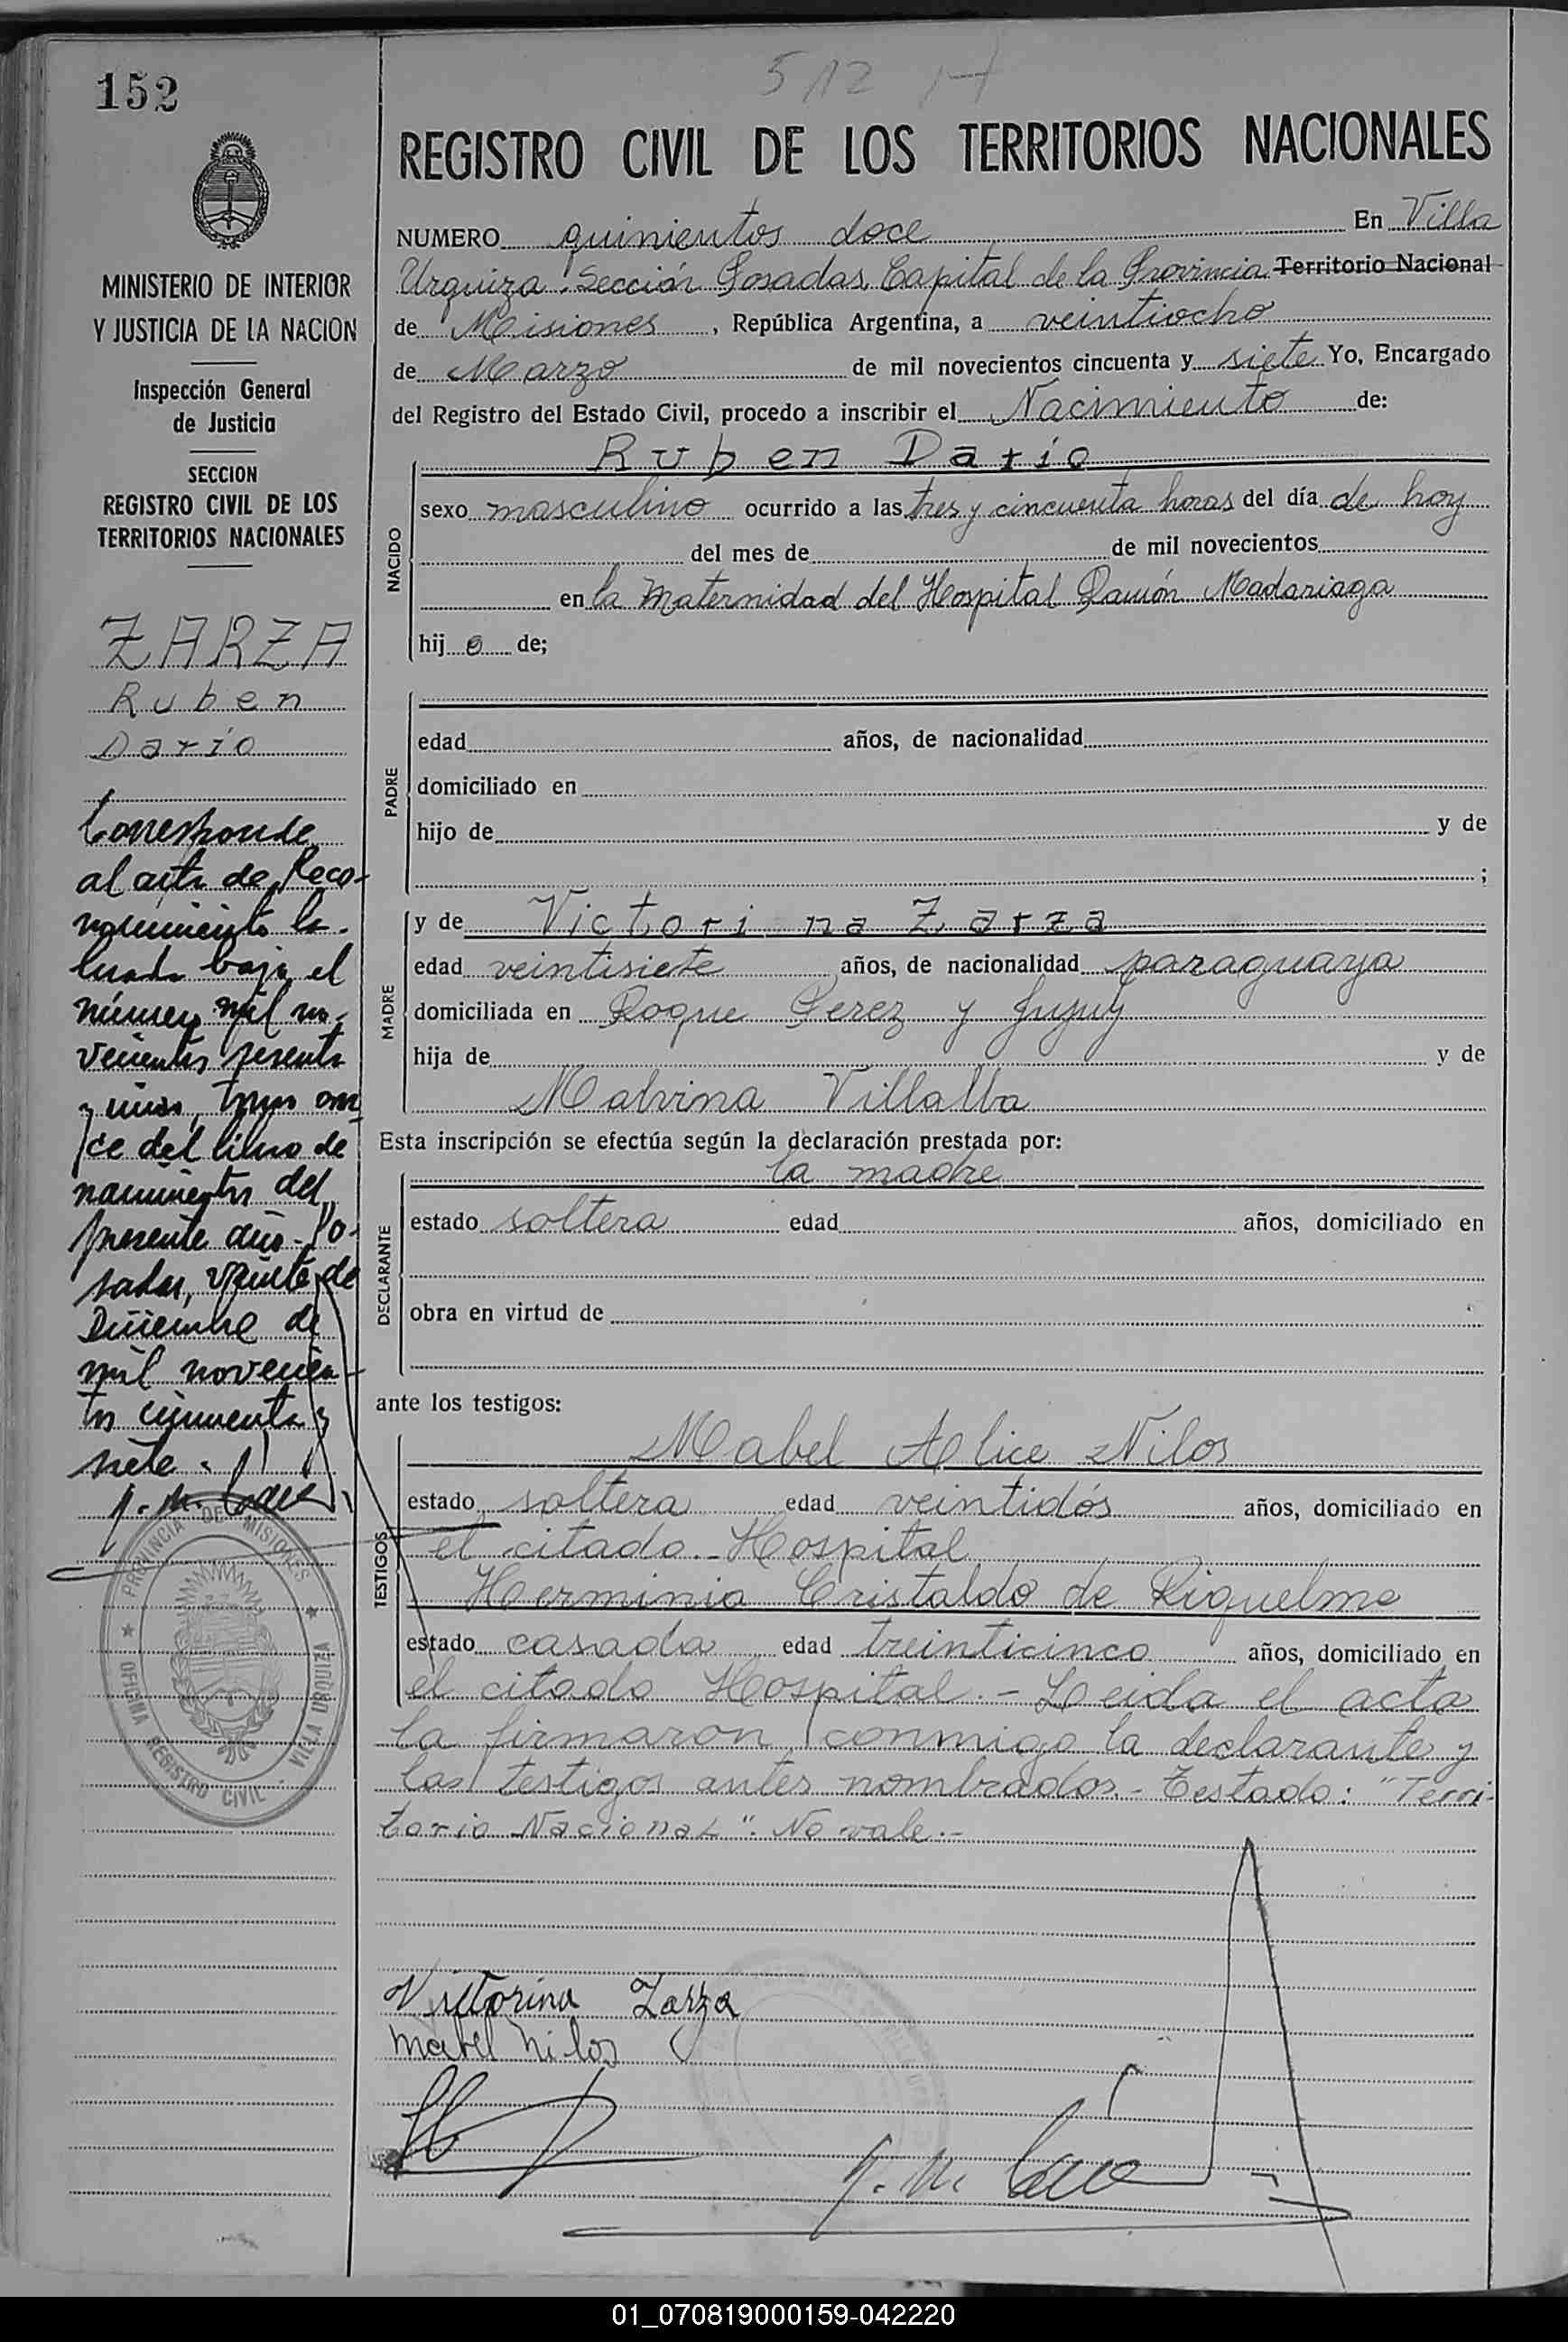 152
512 H
REGISTRO CIVIL DE LOS TERRITORIOS NACIONALES
MINISTERIO DE INTERIOR
Y JUSTICIA DE LA NACION
Inspección General
de Justicia
SECCION
REGISTRO CIVIL DE LOS
TERRITORIOS NACIONALES
ZARZA
Ruben
Dario
Corresponde
al acta de Reco-
nocimiento la-
brada bajo el
número mil no-
vecientos sesenta
y uno, tomo on
ce del libro de
nacimientos del
presente año - Po-
sadas, veinte de
Diciembre de
mil novecien-
tos cincuenta y
siete.-
PROVINCIA DE MISIONES
OFICINA REGISTRO CIVIL - VILLA URQUIZA
NUMERO quinientos doce En Villa
Urquiza Sección Posadas, Capital de la Provincia Territorio Nacional
de Misiones, República Argentina, a veintiocho
de Marzo de mil novecientos cincuenta y siete Yo, Encargado
del Registro del Estado Civil, procedo a inscribir el Nacimiento de:
NACIDO
Ruben Dario
sexo masculino ocurrido a las tres y cincuenta horas del día de hoy
del mes de de mil novecientos
en la Maternidad del Hospital Ramón Madariaga
hij o de;
PADRE
edad años, de nacionalidad
domiciliado en
hijo de y de
;
MADRE
y de Victorina Zarza
edad veintisiete años, de nacionalidad paraguaya
domiciliada en Roque Perez y Jujuy
hija de y de
Malvina Villalba
Esta inscripción se efectúa según la declaración prestada por:
DECLARANTE
la madre
estado soltera edad años, domiciliado en
obra en virtud de
ante los testigos:
TESTIGOS
Mabel Alice Nilos
estado soltera edad veintidós años, domiciliado en
el citado.- Hospital
Herminia Cristaldo de Riquelme
estado casada edad treinticinco años, domiciliado en
el citado Hospital.- Leida el acta
la firmaron conmigo la declarante y
las testigos antes nombrados.- Testado: "Terri-
torio Nacional". No vale.-
Victorina Zarza
Mabel Nilos
01_070819000159-042220